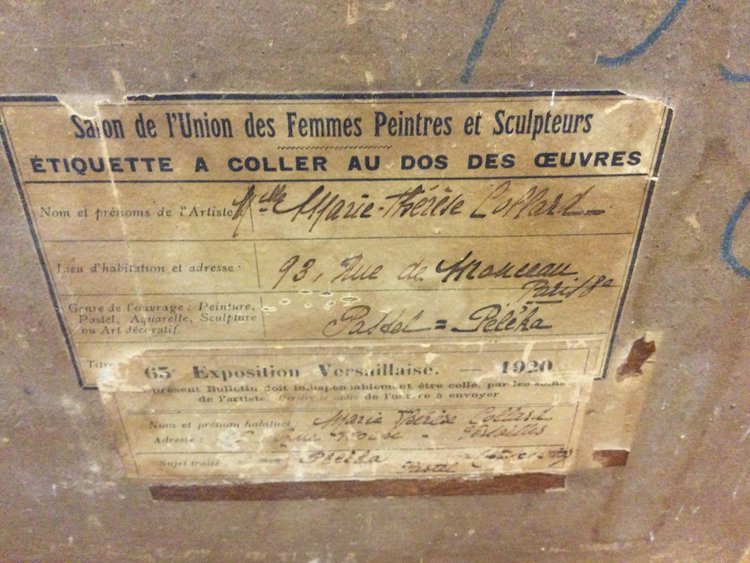 Salon de l'Union des Femmes Peintres et Sculpteurs
ÉTIQUETTE A COLLER AU DOS DES ŒUVRES
Nom et prénoms de l'Artiste Mlle Marie-Thérèse Collard
Lieu d'habitation et adresse : 93, Rue de Monceau
Paris 8e
Genre de l'ouvrage : Peinture,
Pastel, Aquarelle, Sculpture
ou Art décoratif.
Pastel = Péléka
Titre
65 Exposition Versaillaise. — 1920
présent Bulletin doit indispensablement être collé, par les soins
de l'artiste. Derrière le cadre de l'œuvre à envoyer
Nom et prénom habituel Marie Thérèse Collard
Adresse : Versailles
Sujet traité : Péléka Pastel